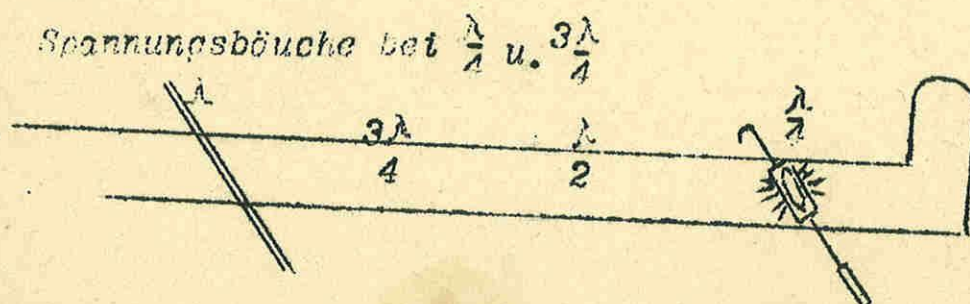 Spannungsbäuche bei λ/4 u. 3λ/4
λ 3λ/4 λ/2 λ/4